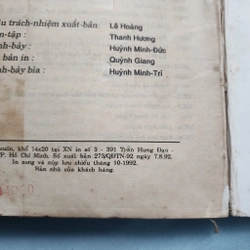 u trách-nhiệm xuất-bản: Lê Hoàng
n-tập : Thanh Hương
nh-bày : Huỳnh Minh-Đức
bản in : Quỳnh Giang
nh-bày bìa : Huỳnh Minh-Trí
cuốn, khổ 14x20 tại XN in số 3 - 391 Trần Hưng Đạo -
TP. Hồ Chí Minh. Số xuất bản 273/QĐTN-92 ngày 7.8.92.
In xong và nộp lưu chiểu tháng 10-1992.
Bản nhũ của khách hàng.